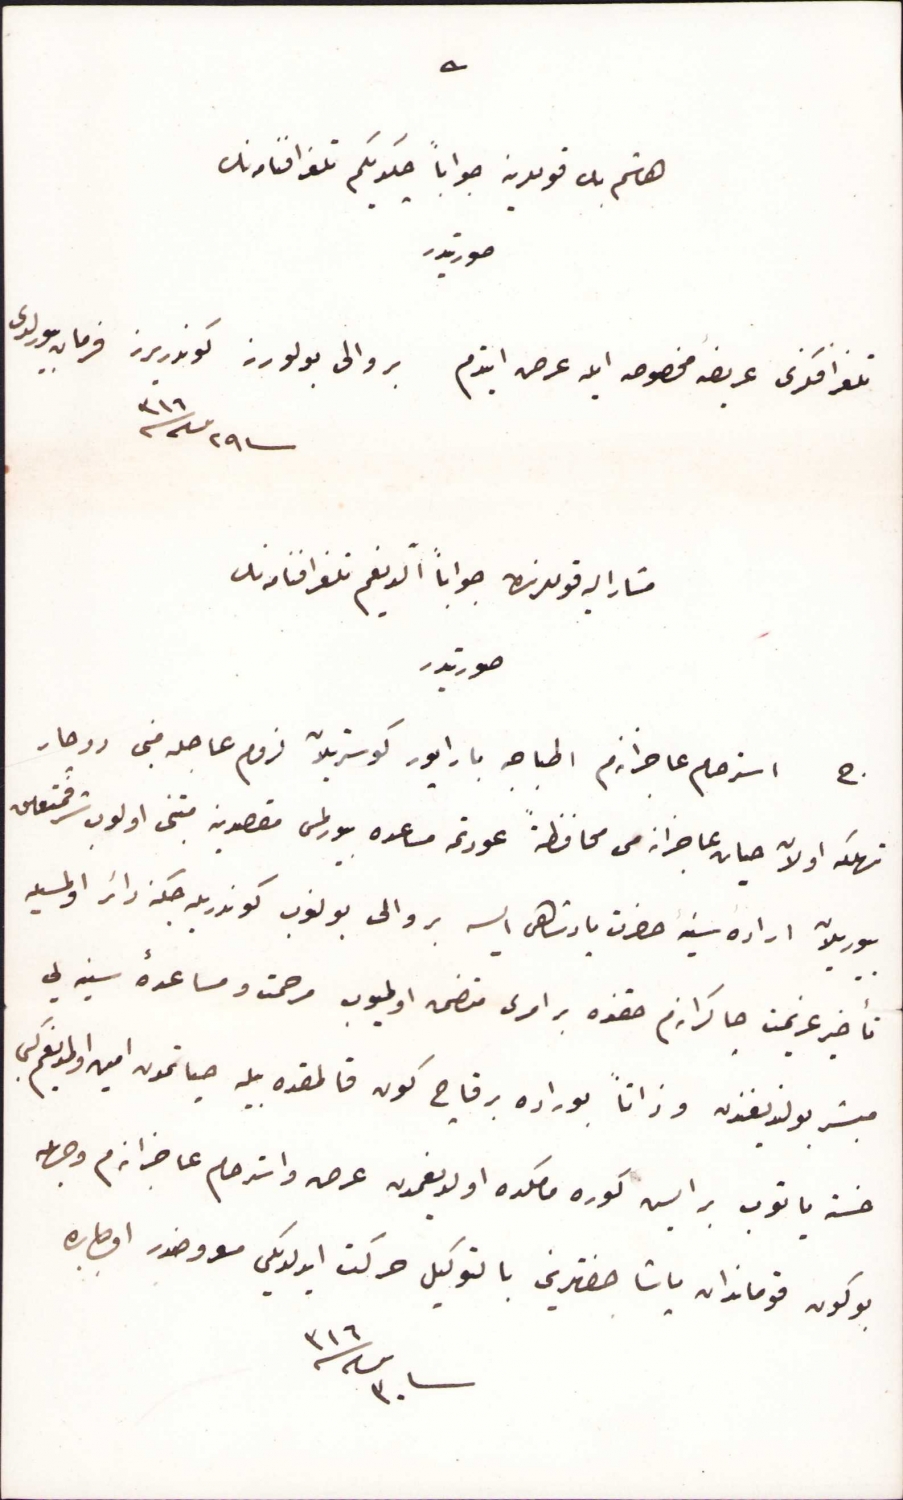 هاشم بك قوللرينه جواباً چكديكم تلغرافنامه‌نك
صورتيدر
تلغرافكزى عريضۀ مخصوصه ايله عرض ايتدم بر والى بولورز كوندريرز فرمان بيورلدى
فى ٢٩ سنه ٣١٦
مشار اليه قوللرندن جواباً آلديغم تلغرافنامه‌نك
صورتيدر
ج استرحام عاجزانه‌م اطباجه با راپور كوستريلان لزوم عاجله مبنى دوچار
تهلكه اولان حيات عاجزانه‌مى محافظةً عودتمه مساعده بيورلمسى مقصدينه مبتنى اولوب شرفمتعلق
بيوريلان ارادۀ سنيۀ حضرت پادشاهى ايسه بر والى بولنوب كوندريله‌جكنه دائر اولمسيله
تأخير عزيمت چاكرانه‌م حقنده بر امرى متضمن اولميوب مرحمت و مساعدۀ سنيه‌يى
مبشر بولنديغندن و ذاتاً بوراده بر قاچ كون قالمقده بيله حياتمدن امين اولمديغم كبى
خسته ياتوب بر ايش كوره‌مامكده اولديغمدن عرض و استرحام عاجزانه‌م وجهله
بوكون قوماندان پاشا حضرتلرينى بالتوكيل حركت ايدلديكى معروضدر اولبابده
فى ٣٠ سنه ٣١٦